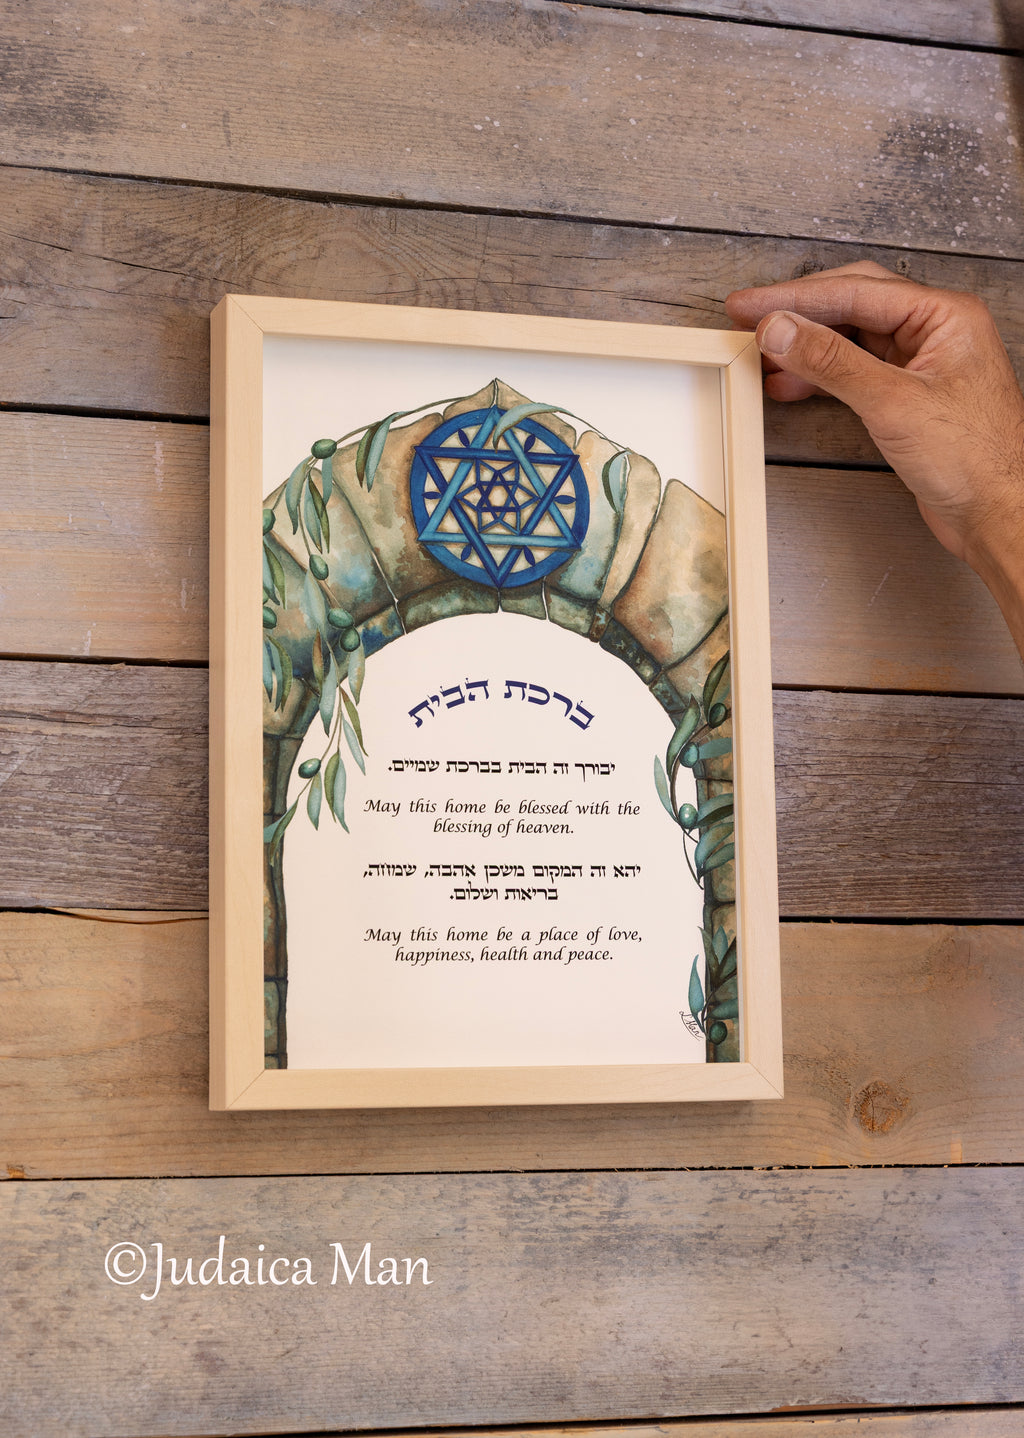 ברכת הבית
יבורך זה הבית בברכת שמיים.
May this home be blessed with the
blessing of heaven.
יהא זה המקום משכן אהבה, שמחה,
בריאות ושלום.
May this home be a place of love,
happiness, health and peace.
L. Man
©Judaica Man